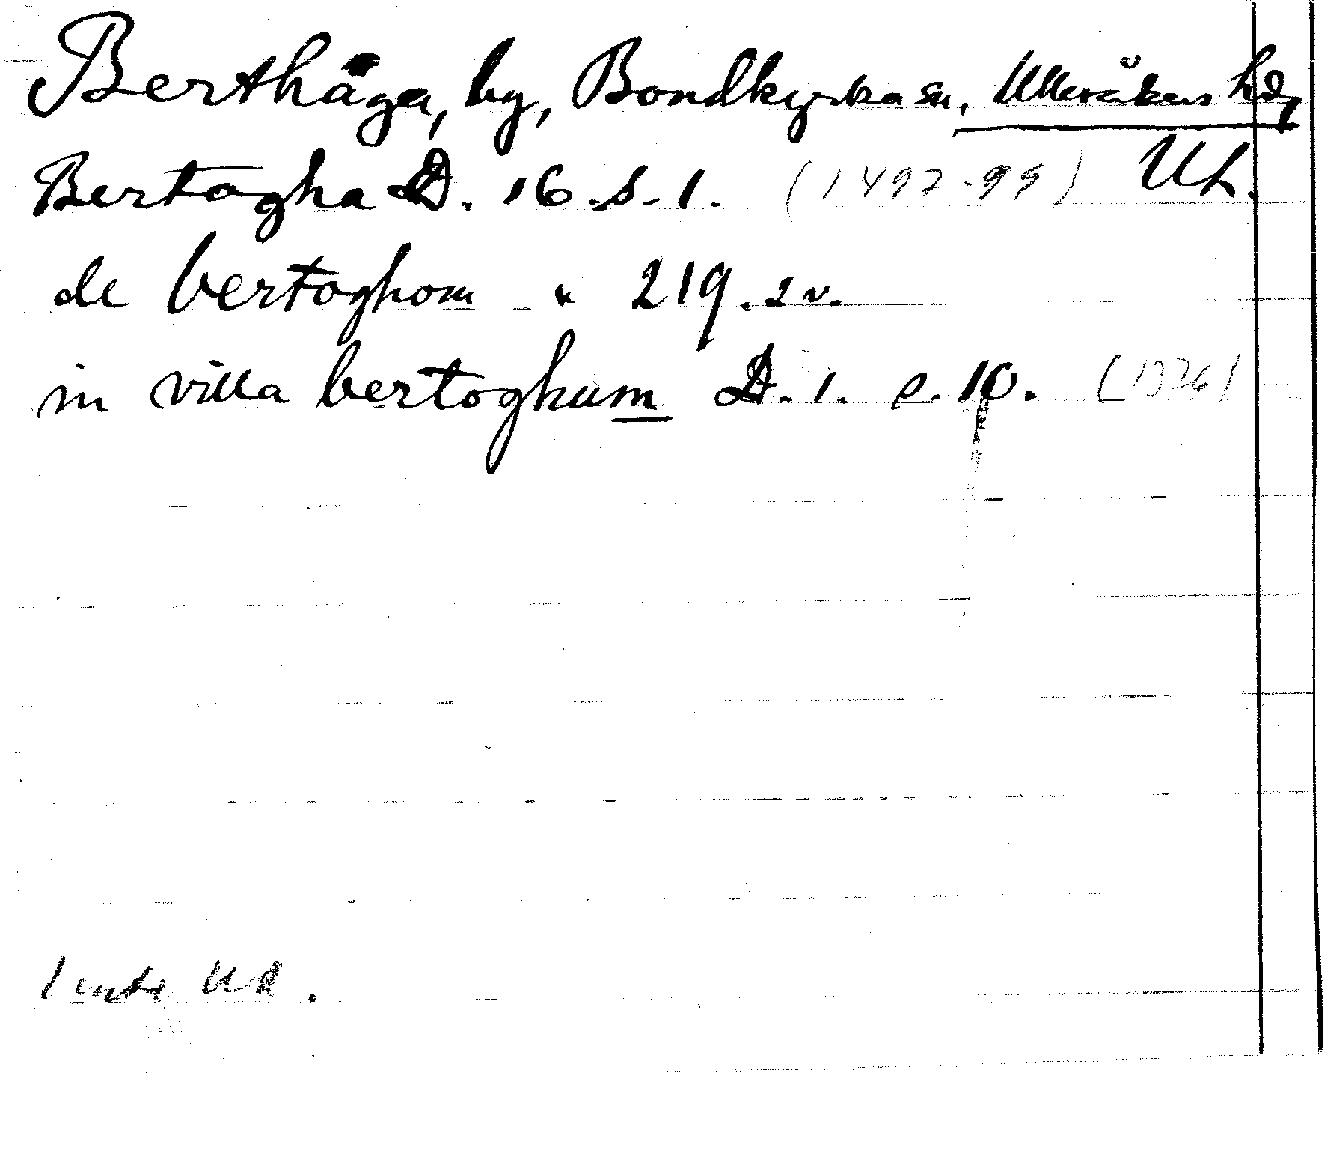 Berthåga, by, Bondkyrka sn, Ulleråkers hd,
Bertogha D. 16. s. 1. (1497-99) Ul.
de bertoghom " 219. 2 v.
in villa bertoghum D. 1. s. 10. (1376)